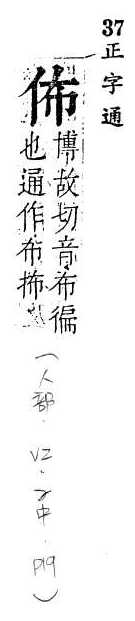 37正字通
佈
博故切音布徧
也通作布抪
(人部.V2.子中.P19)